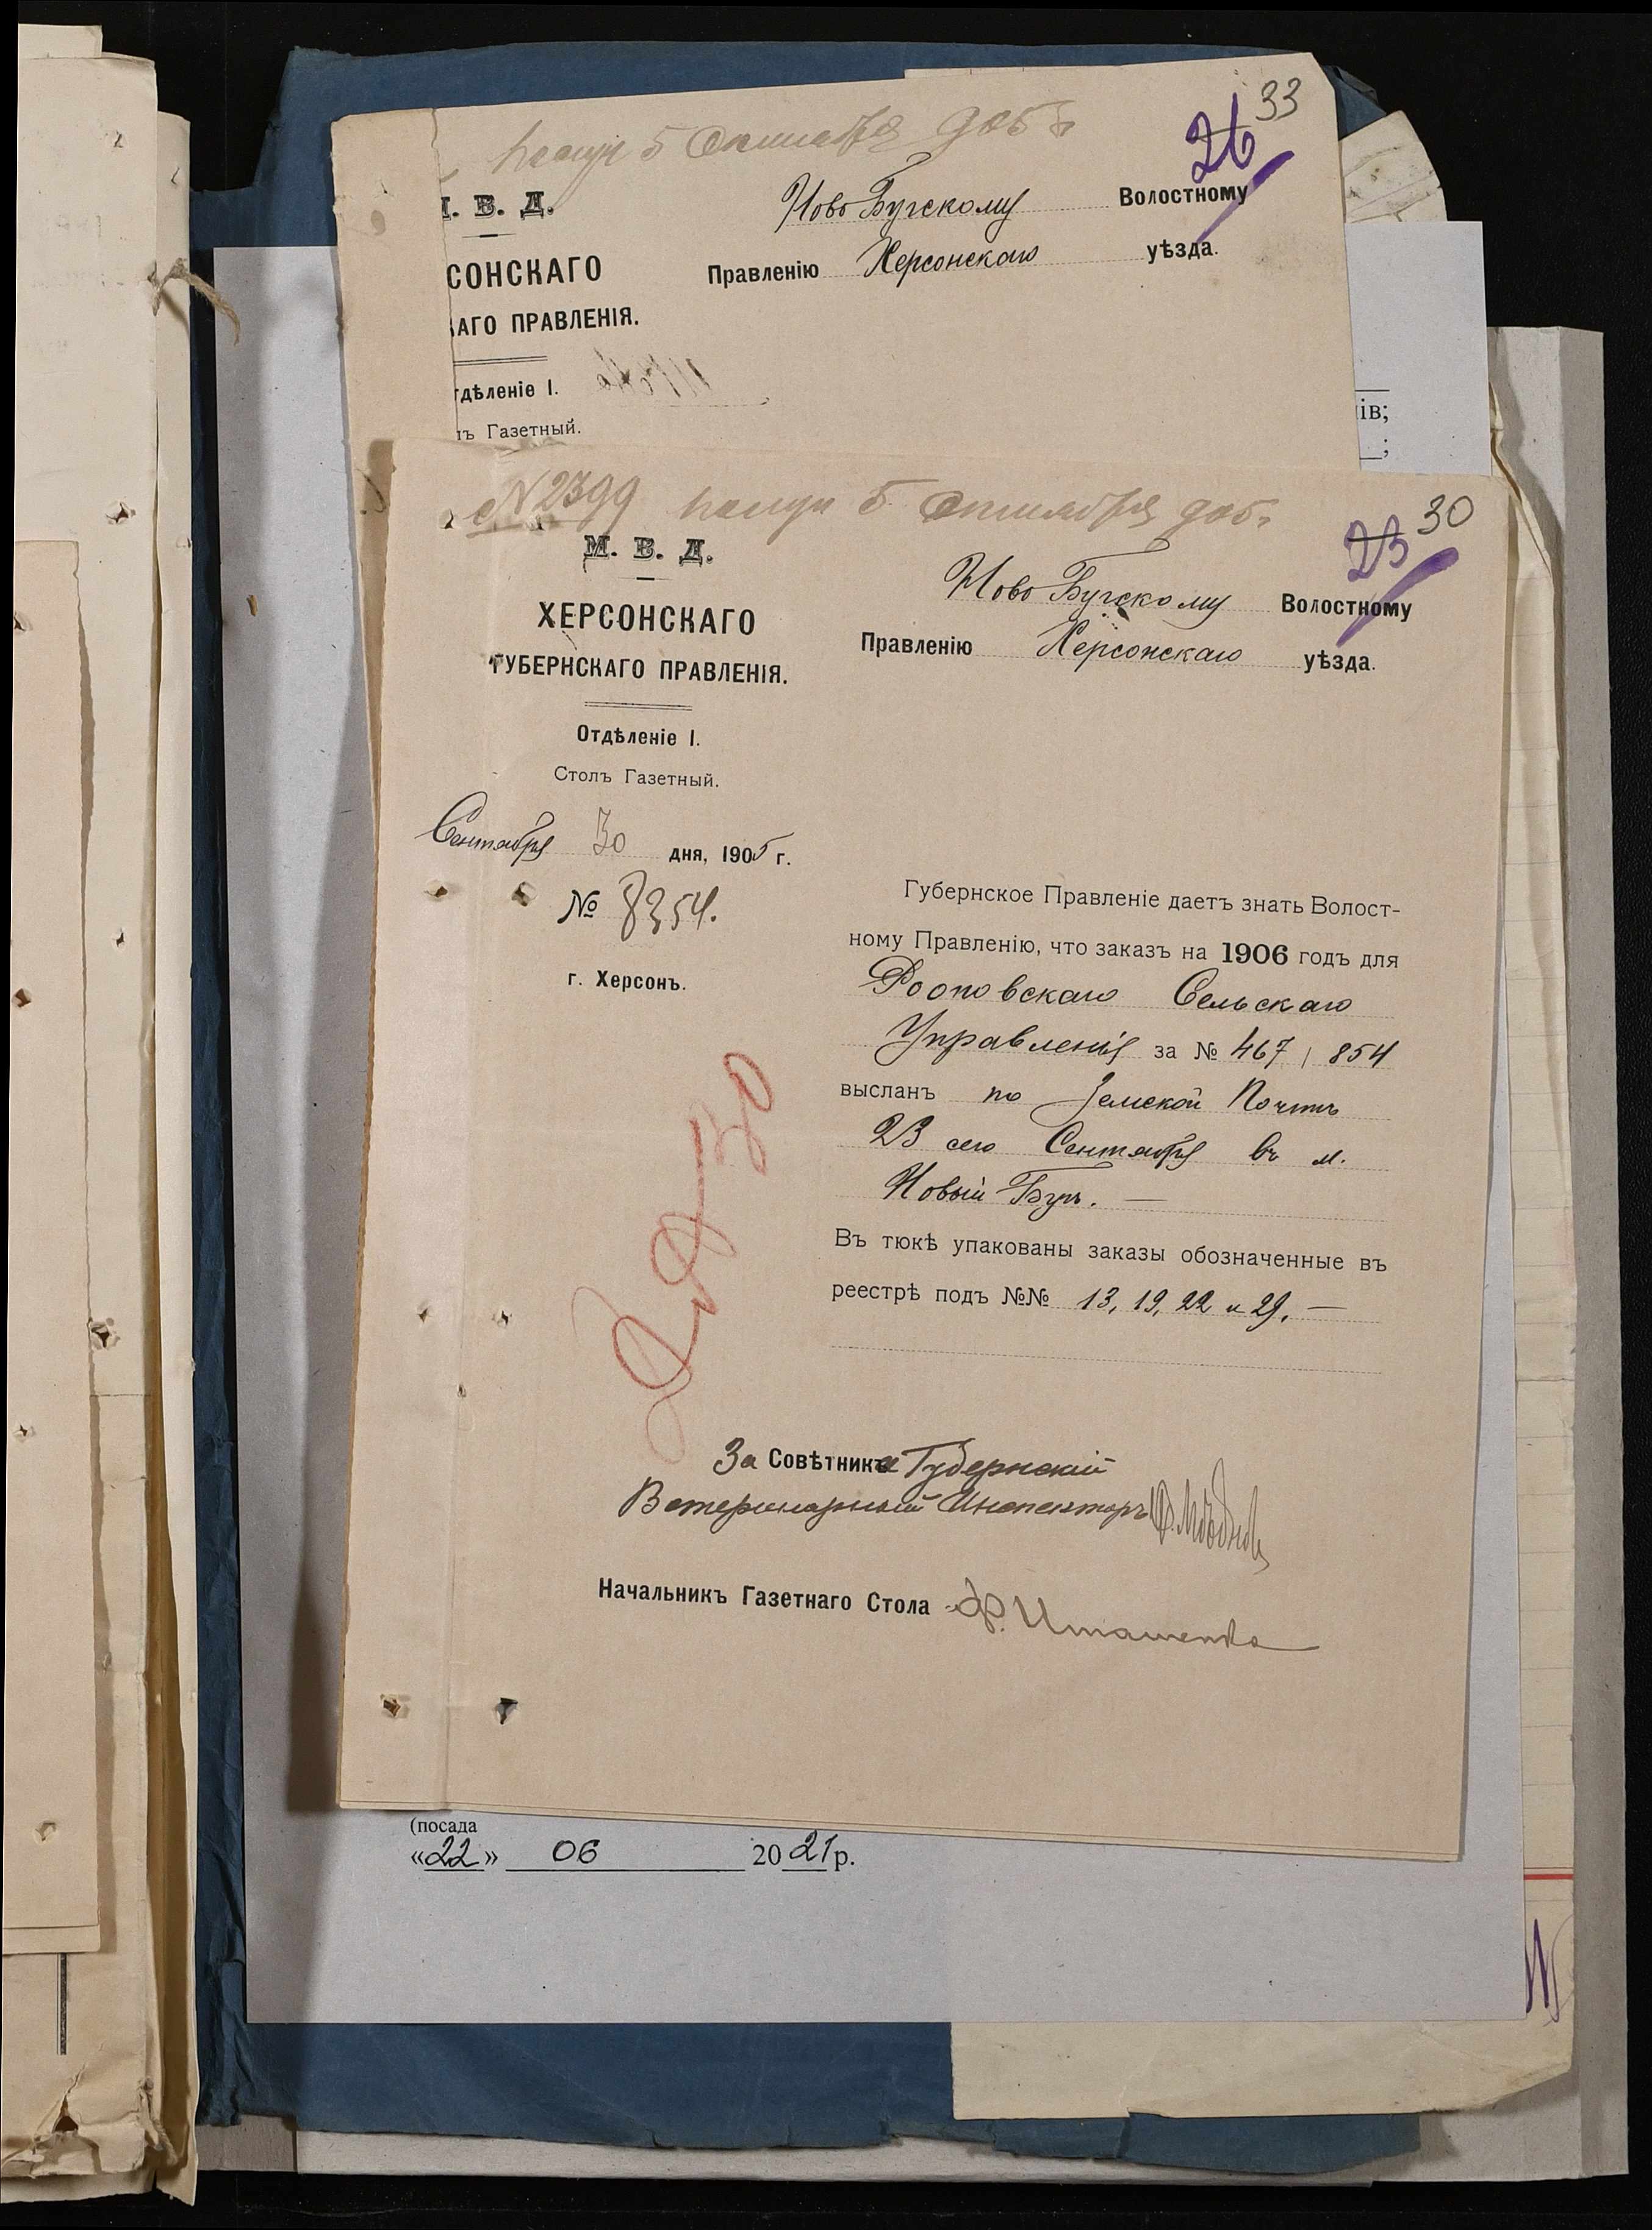 5 Октября 905 г.
33
26
. В. Д.
Ново Бугскому Волостному
Правленію Херсонскаго уѣзда.
СОНСКАГО
АГО ПРАВЛЕНІЯ.
дѣленіе I.
ъ Газетный.
ів;
;
№ 2399 получ 5 Октября 905 г.
30
23
М. В. Д.
Ново Бугскому Волостному
Правленію Херсонскаго уѣзда.
ХЕРСОНСКАГО
ГУБЕРНСКАГО ПРАВЛЕНІЯ.
Отдѣленіе I.
Столъ Газетный.
Сентября 30 дня, 1905 г.
№ 8354.
г. Херсонъ.
Губернское Правленіе даетъ знать Волост-
ному Правленію, что заказъ на 1906 годъ для
Сельскаго
Управленія за № 467 / 854
высланъ по Земской Почтѣ
23 сего Сентября въ м.
Новый Бугъ. —
Въ тюкѣ упакованы заказы обозначенные въ
реестрѣ подъ №№ 13, 19, 22 и 29. —
За Совѣтника Губернскій
Ветеринарный Инспекторъ
Начальникъ Газетнаго Стола
(посада
«22» 06 2021 р.